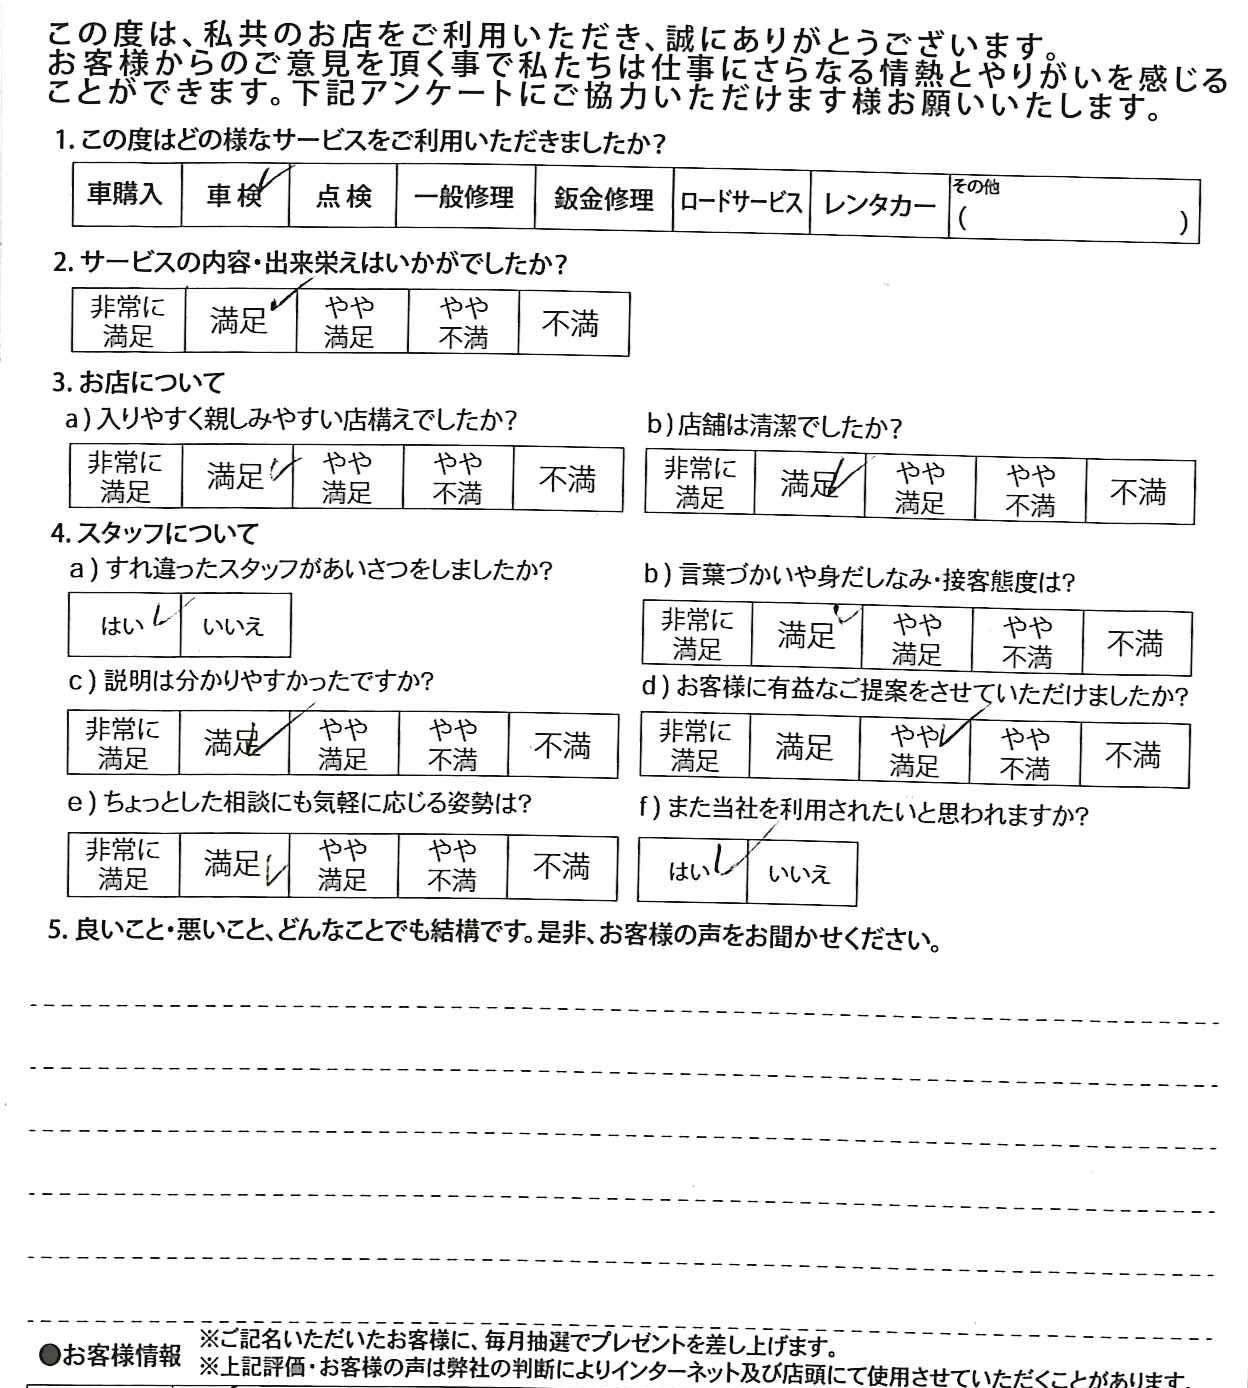 この度は、私共のお店をご利用いただき、誠にありがとうございます。
お客様からのご意見を頂く事で私たちは仕事にさらなる情熱とやりがいを感じる
ことができます。下記アンケートにご協力いただけます様お願いいたします。
1. この度はどの様なサービスをご利用いただきましたか?
車購入 車検 点検 一般修理 鈑金修理 ロードサービス レンタカー その他 ( )
2. サービスの内容・出来栄えはいかがでしたか?
非常に満足 満足 やや満足 やや不満 不満
3. お店について
a) 入りやすく親しみやすい店構えでしたか?
非常に満足 満足 やや満足 やや不満 不満
b) 店舗は清潔でしたか?
非常に満足 満足 やや満足 やや不満 不満
4. スタッフについて
a) すれ違ったスタッフがあいさつをしましたか?
はい いいえ
b) 言葉づかいや身だしなみ・接客態度は?
非常に満足 満足 やや満足 やや不満 不満
c) 説明は分かりやすかったですか?
非常に満足 満足 やや満足 やや不満 不満
d) お客様に有益なご提案をさせていただけましたか?
非常に満足 満足 やや満足 やや不満 不満
e) ちょっとした相談にも気軽に応じる姿勢は?
非常に満足 満足 やや満足 やや不満 不満
f) また当社を利用されたいと思われますか?
はい いいえ
5. 良いこと・悪いこと、どんなことでも結構です。是非、お客様の声をお聞かせください。
●お客様情報
※ご記名いただいたお客様に、毎月抽選でプレゼントを差し上げます。
※上記評価・お客様の声は弊社の判断によりインターネット及び店頭にて使用させていただくことがあります。